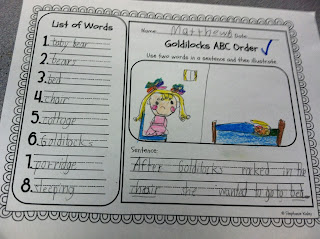 List of Words
1. baby bear
2. bears
3. bed
4. chair
5. cottage
6. Goldilocks
7. porridge
8. sleeping
Name Matthew Date
Goldilocks ABC Order
Use two words in a sentence and then illustrate.
Sentence:
After Goldilocks rocked in the
chair she wanted to go to bed.